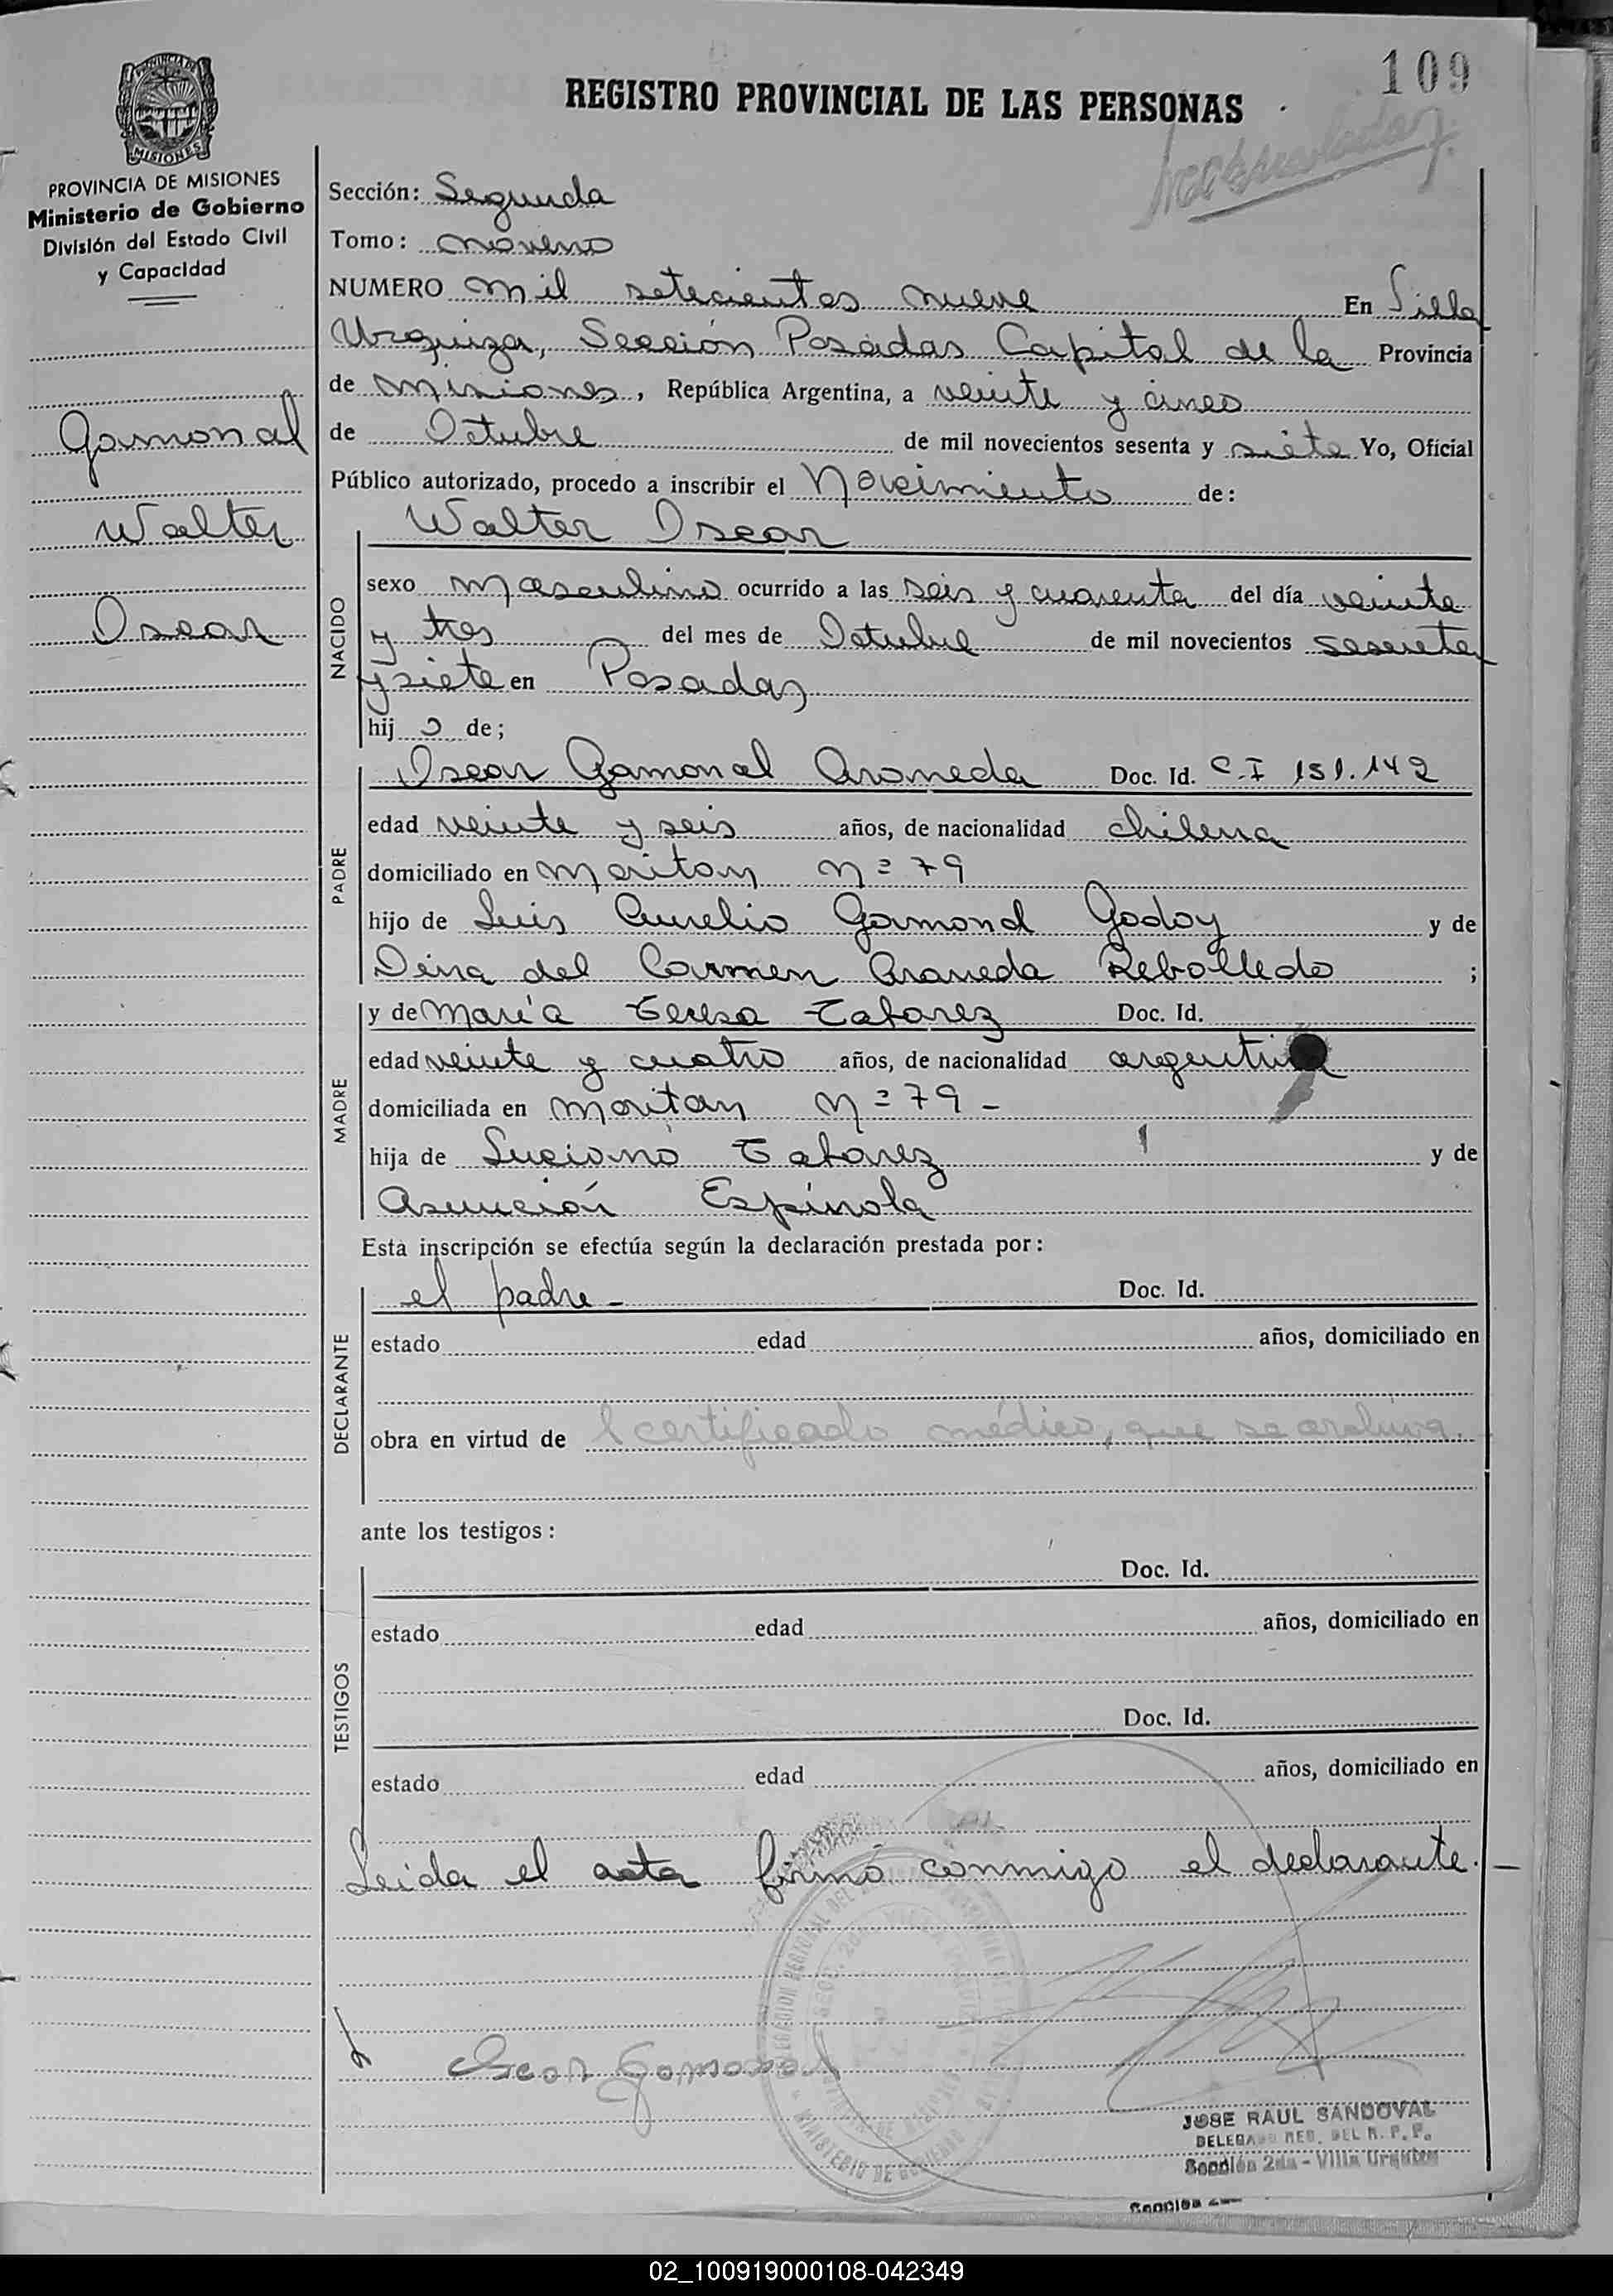 109
REGISTRO PROVINCIAL DE LAS PERSONAS
PROVINCIA DE MISIONES
Ministerio de Gobierno
División del Estado Civil
y Capacidad
Gamonal
Walter
Oscar
Sección: Segunda
Tomo: noveno
NUMERO mil setecientos nueve En Villa
Urquiza, Sección Posadas Capital de la Provincia
de Misiones, República Argentina, a veinte y cinco
de Octubre de mil novecientos sesenta y siete Yo, Oficial
Público autorizado, procedo a inscribir el Nacimiento de:
Walter Oscar
NACIDO
sexo masculino ocurrido a las seis y cuarenta del día veinte
y tres del mes de Octubre de mil novecientos sesenta
y siete en Posadas
hijo de;
PADRE
Oscar Gamonal Araneda Doc. Id. C.I 151.142
edad veinte y seis años, de nacionalidad chilena
domiciliado en Moritan Nº 79
hijo de Luis Aurelio Gamonal Godoy y de
Dina del Carmen Araneda Rebolledo ;
MADRE
y de María Teresa Tabarez Doc. Id.
edad veinte y cuatro años, de nacionalidad argentina
domiciliada en Moritan Nº 79 -
hija de Luciano Tabarez y de
Asunción Espínola
Esta inscripción se efectúa según la declaración prestada por:
DECLARANTE
el padre - Doc. Id.
estado edad años, domiciliado en
obra en virtud de l certificado médico, que se archiva.
ante los testigos:
TESTIGOS
Doc. Id.
estado edad años, domiciliado en
Doc. Id.
estado edad años, domiciliado en
Leida el acta firmó conmigo el declarante. -
Oscar Gamonal
JOSE RAUL SANDOVAL
DELEGADO REG. DEL R. P. P.
Sección 2da - Villa Urquiza
02_100919000108-042349